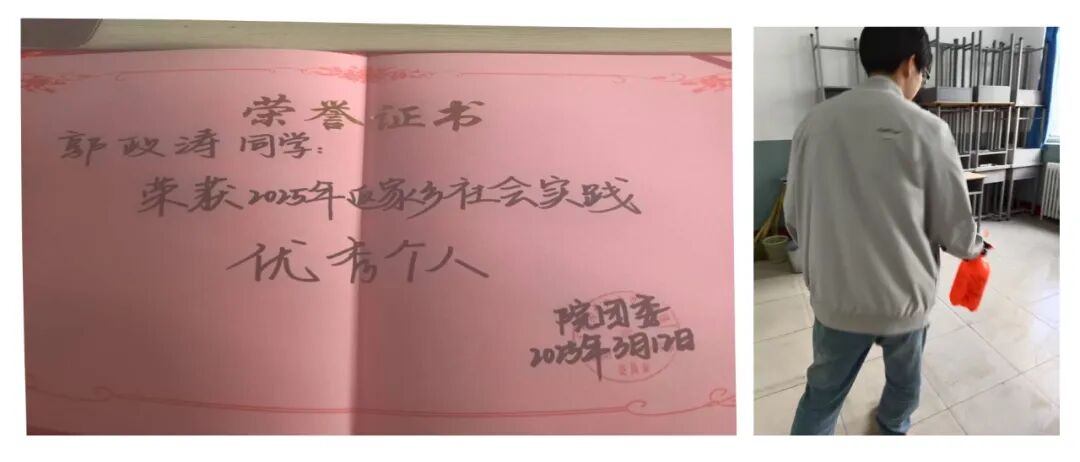 荣誉证书
郭政涛 同学:
荣获2025年返家乡社会实践
优秀个人
院团委
2025年3月12日